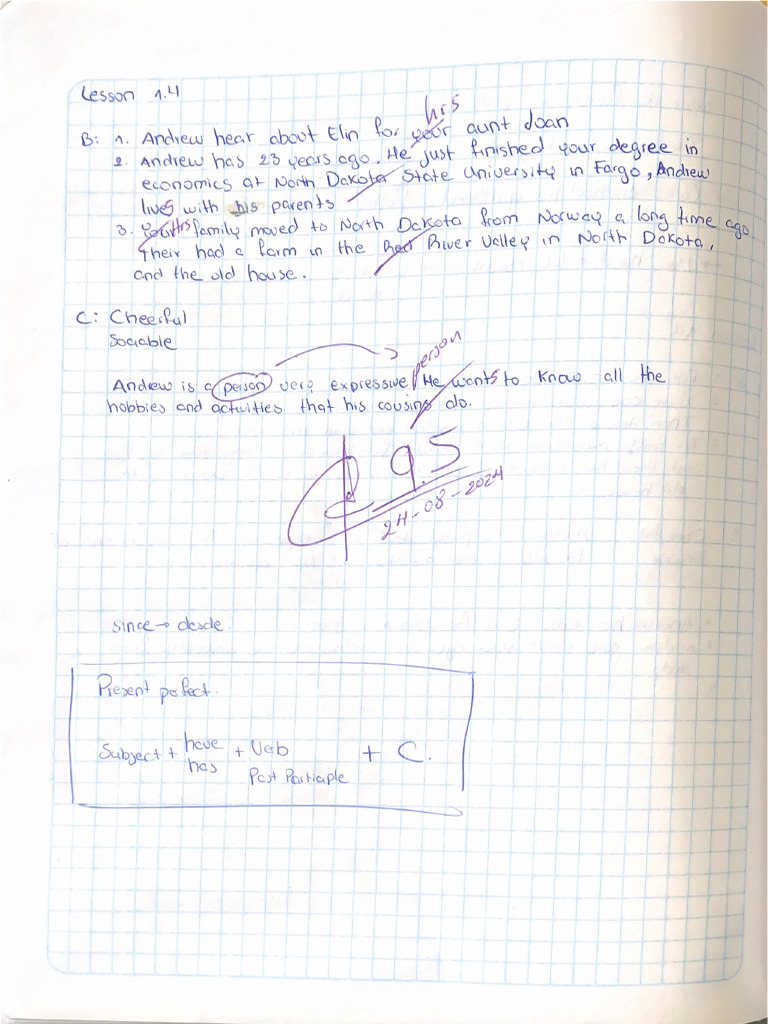 Lesson 1.4
his
B: 1. Andrew hear about Elin for your aunt Joan
2. Andrew has 23 years ago. He just finished your degree in
economics at North Dakota State University in Fargo, Andrew
lives with his parents
3. Your his family moved to North Dakota from Norway a long time ago.
Their had a farm in the Red River Valley in North Dakota,
and the old house.
C: Cheerful
Sociable
person
Andrew is a person very expressive. He wants to know all the
hobbies and activities that his cousins do.
9.5
24-08-2024
since → desde.
Present perfect.
Subject + have has + Verb Past Participle + C.